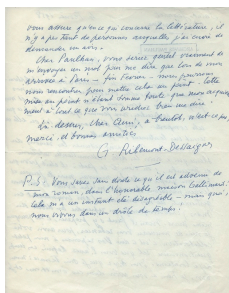 vous assure qu'en ce qui concerne la littérature, il
n'y a pas tant de personnes auxquelles j'ai envie de
demander un avis.
Cher Paulhan, vous seriez gentil vraiment de
m'envoyer un mot pour me dire que lors de mon
arrivée à Paris – fin Février – nous pourrons
nous rencontrer pour mettre cela au point. Cette
mise au point n'étant somme toute que mon acquiesce-
ment à tout ce que vous voudrez bien me dire.
Là-dessus, cher ami, à bientôt, n'est-ce pas,
merci, et bonnes amitiés
G Ribemont-Dessaignes
P.S. Vous savez sans doute ce qui est advenu de
mon roman, dans l'honorable maison Gallimard :
cela m'a un instant été désagréable – mais quoi,
nous vivons dans un drôle de temps.